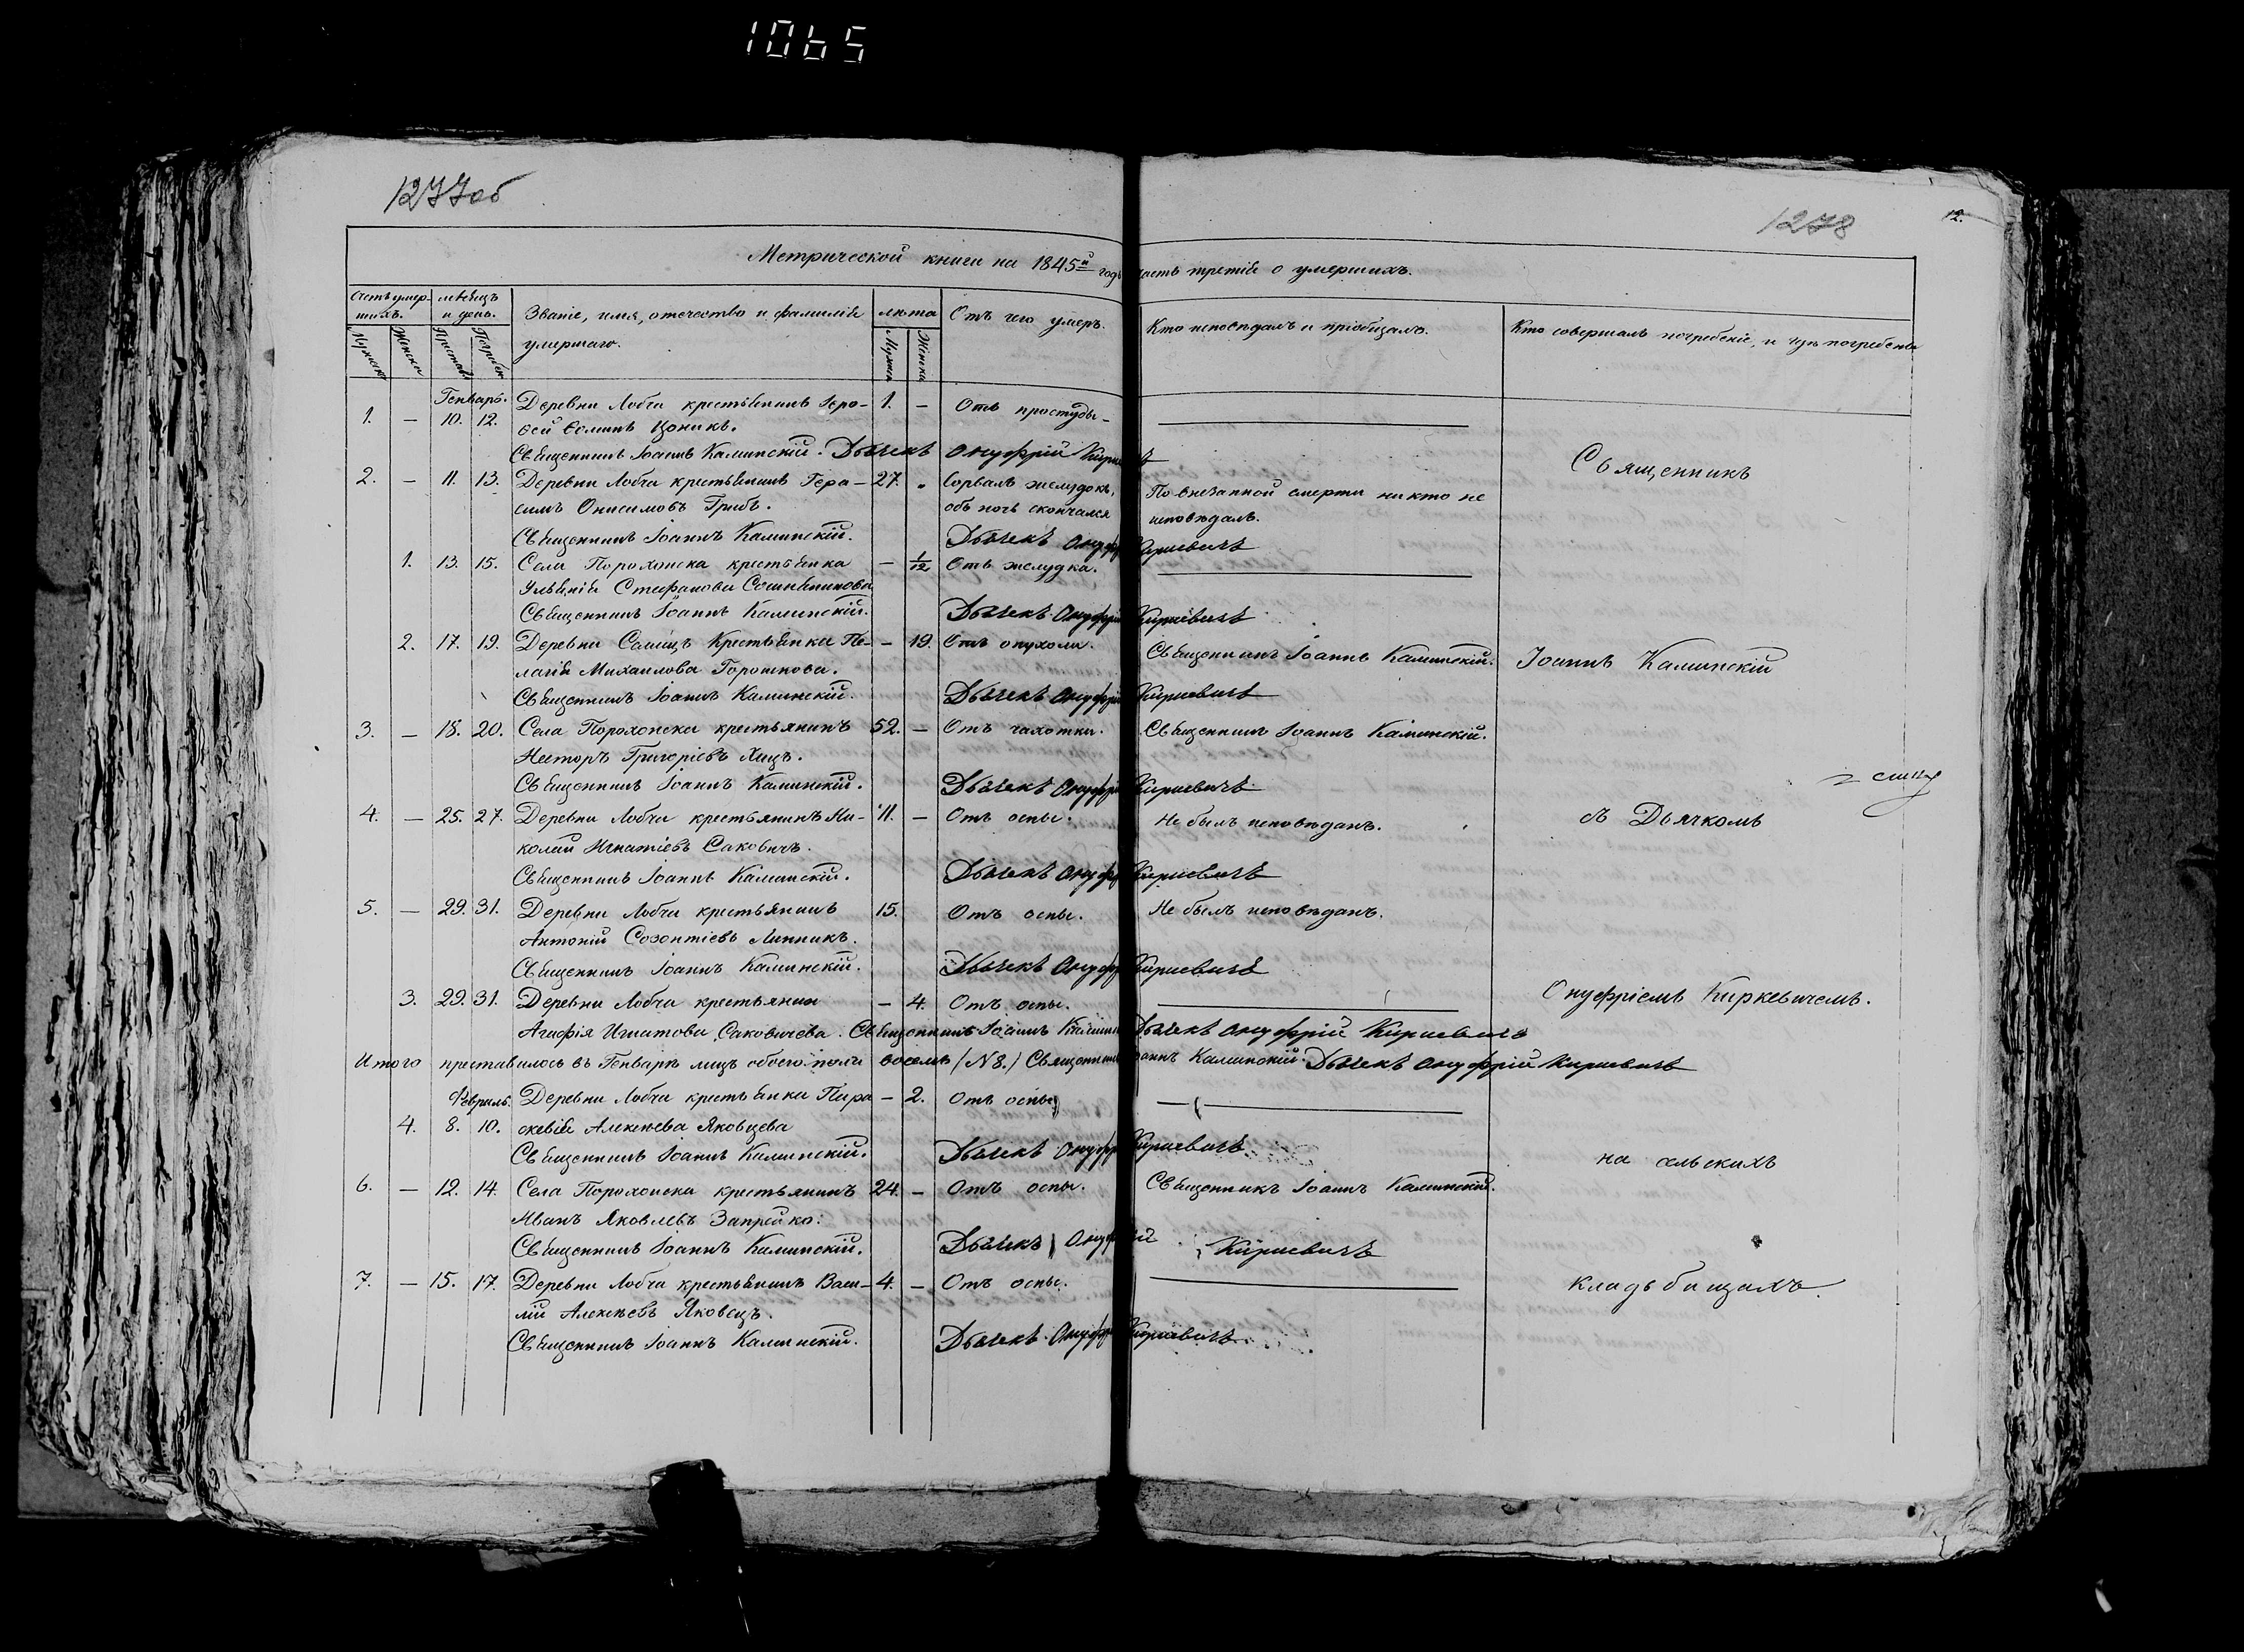 1065
1277об
1278
12.
Метрической книги на 1845й годъ часть третія о умершихъ.
Счетъ умер- мѣсяцъ Званіе, имя, отечество и фамилія лѣта Отъ чего умеръ. Кто исповѣдалъ и пріобщалъ. Кто совершалъ погребеніе, и гдѣ погребены
шихъ. и день. умершаго.
Мужеска Женска Мужеска Женска
Генварь. Деревни Лобчи крестьянинъ 1. — Отъ простуды —
1. — 10. 12. Ѳоминъ Цоникъ.
Священникъ Іоаннъ Каминскій. Дьячекъ Онуфрій
2. — 11. 13. Деревни Лобчи крестьянинъ Гера- 27. Сорвалъ желудокъ, По внезапной смерти никто не
симъ Онисимовъ Грибъ. объ ночь скончался исповѣдалъ.
Священникъ Іоаннъ Каминскій. Дьячекъ
1. 13. 15. Села Порохонска крестьянка — 1/12 Отъ желудка.
Ульянія Стефанова
Священникъ Іоаннъ Каминскій. Дьячекъ Онуфрій Киркевичъ
2. 17. 19. Деревни крестьянка Пе- — 19. Отъ опухоли. Священникъ Іоаннъ Каминскій.
лагія Михаилова Горошкова.
Священникъ Іоаннъ Каминскій. Дьячекъ Онуфрій Киркевичъ
3. — 18. 20. Села Порохонска крестьянинъ 52. — Отъ чахотки. Священникъ Іоаннъ Каминскій.
Несторъ Григоріевъ Хицъ.
Священникъ Іоаннъ Каминскій. Дьячекъ Онуфрій Киркевичъ
4. — 25. 27. Деревни Лобчи крестьянинъ Ни- 11. — Отъ оспы. Не былъ исповѣданъ.
колай Игнатіевъ Саковичъ.
Священникъ Іоаннъ Каминскій. Дьячекъ Киркевичъ
5. — 29. 31. Деревни Лобчи крестьянинъ 15. Отъ оспы. Не былъ исповѣданъ.
Антоній Созонтіевъ Линникъ.
Священникъ Іоаннъ Каминскій. Дьячекъ Киркевичъ
3. 29. 31. Деревни Лобчи крестьянка — 4. Отъ оспы.
Агафія Игнатова Саковичева. Священникъ Іоаннъ Дьячекъ Онуфрій Киркевичъ
Итого преставилось въ Генварѣ лицъ обоего пола восемь (№ 8.) Священникъ Іоаннъ Каминскій. Дьячекъ Онуфрій Киркевичъ
Февраль. Деревни Лобчи крестьянка Пара- — 2. Отъ оспы
4. 8. 10. скевія Алексѣева Яковцева
Священникъ Іоаннъ Каминскій. Дьячекъ Киркевичъ
6. — 12. 14. Села Порохонска крестьянинъ 24. — Отъ оспы. Священникъ Іоаннъ Каминскій.
Иванъ Яковлевъ Запрейко:
Священникъ Іоаннъ Каминскій. Дьячекъ Онуфрій Киркевичъ
7. — 15. 17. Деревни Лобчи крестьянинъ Васи- 4. — Отъ оспы.
лій Алексѣевъ Яковецъ.
Священникъ Іоаннъ Каминскій. Дьячекъ Киркевичъ
Священникъ
Іоаннъ Каминскій
съ Дьячкомъ
Онуфріемъ Киркевичемъ.
на сельскихъ
кладьбищахъ.